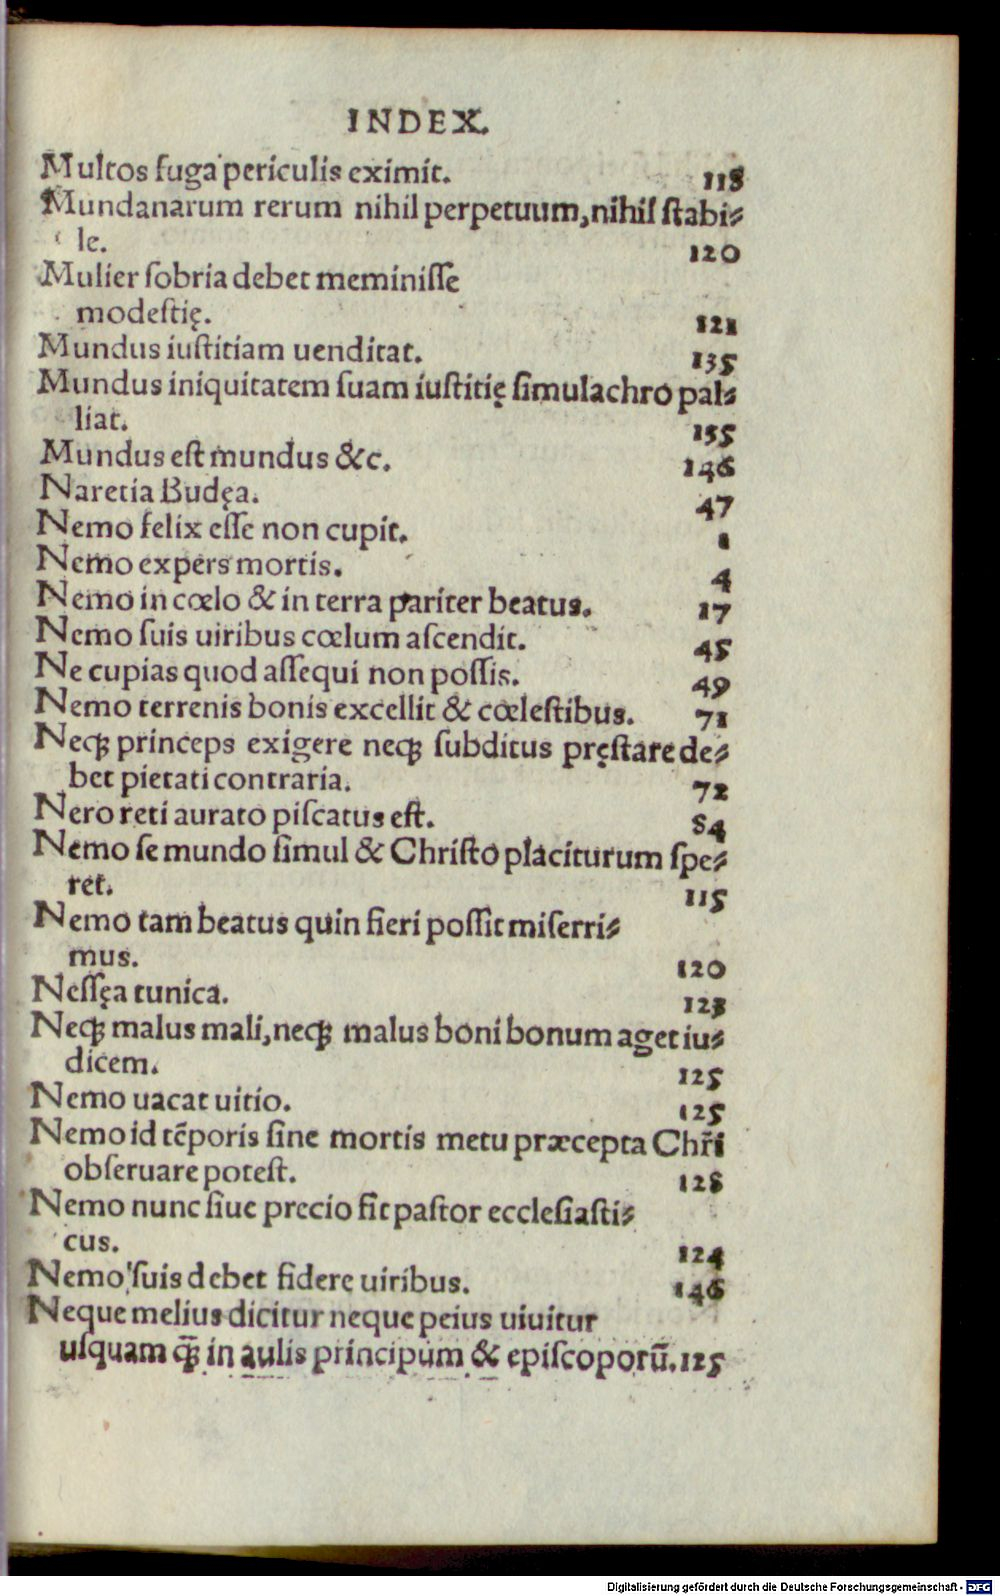 INDEX.
Multos fuga periculis eximit. 118
Mundanarum rerum nihil perpetuum, nihil ſtabi⸗
le. 120
Mulier ſobria debet meminiſſe
modeſtię. 121
Mundus iuſtitiam uenditat. 135
Mundus iniquitatem ſuam iuſtitię ſimulachro pal⸗
liat. 135
Mundus eſt mundus &c. 146
Naretia Budęa. 47
Nemo felix eſſe non cupit. 1
Nemo expers mortis. 4
Nemo in cœlo & in terra pariter beatus. 17
Nemo ſuis uiribus cœlum aſcendit. 45
Ne cupias quod aſſequi non poſſis. 49
Nemo terrenis bonis excellit & cœleſtibus. 71
Neqꝫ princeps exigere neqꝫ ſubditus pręſtare de⸗
bet pietati contraria. 72
Nero reti aurato piſcatus eſt. 84
Nemo ſe mundo ſimul & Chriſto placiturum ſpe⸗
ret. 115
Nemo tam beatus quin fieri poſſit miſerri⸗
mus. 120
Neſſęa tunica. 123
Neqꝫ malus mali, neqꝫ malus boni bonum aget iu⸗
dicem. 125
Nemo uacat uitio. 125
Nemo id tẽporis ſine mortis metu præcepta Chr̃i
obſeruare poteſt. 128
Nemo nunc ſiue precio fit paſtor eccleſiaſti⸗
cus. 124
Nemo ſuis debet fidere uiribus. 146
Neque melius dicitur neque peius uiuitur
uſquam q̃ꝫ in aulis principum & epiſcoporũ. 125
Digitalisierung gefördert durch die Deutsche Forschungsgemeinschaft - DFG